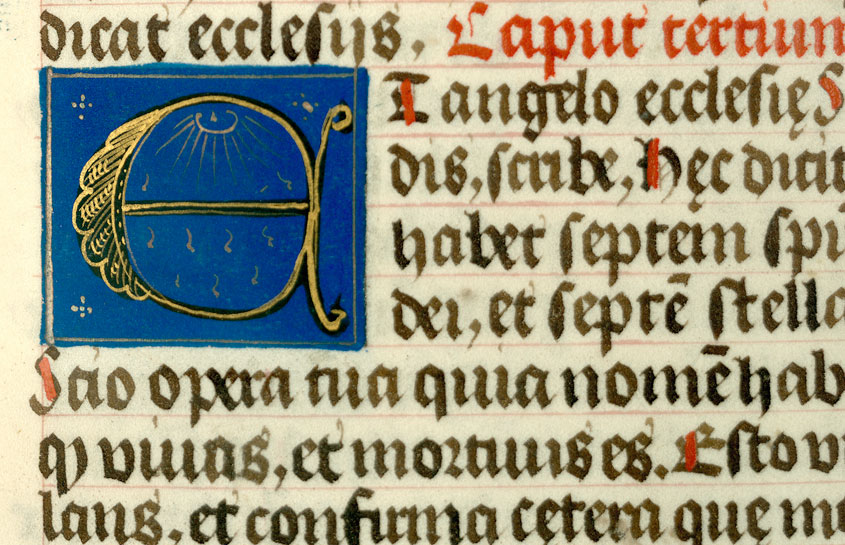 dicat ecclesijs. Caput tertium
ET angelo ecclesię S
dis, scribe, Hęc dicit
habet septem spi
dei, et septē stella
Scio opera tua quia nomē hab
ꝙ viuas, et mortuus es. Esto vi
lans, et confirma cetera quę mo